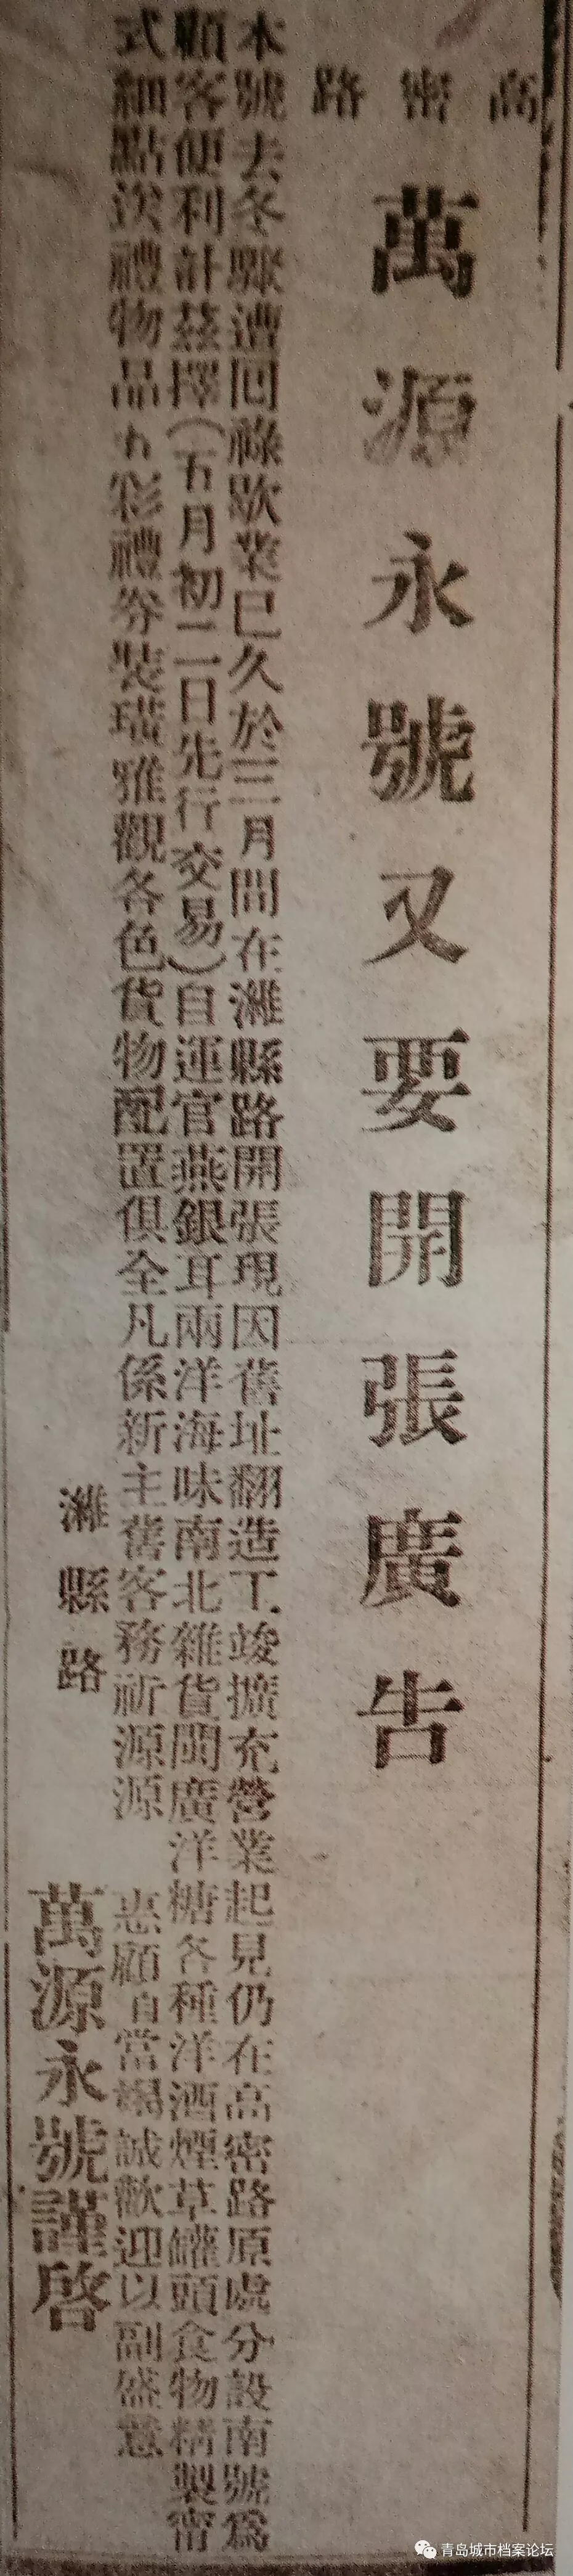 高密路
萬源永號又要開張廣告
本號去冬驟遭回祿歇業已久於三月間在濰縣路開張現因舊址翻造工竣擴充營業起見仍在高密路原處分設南號爲
顧客便利計茲擇（五月初二日先行交易）自運官燕銀耳兩洋海味南北雜貨閩廣洋糖各種洋酒煙草罐頭食物精製甯
式細點送禮物品九彩禮券裝璜雅觀各色貨物配置俱全凡係新主舊客務祈源源 惠顧自當竭誠歡迎以副盛意
濰縣路 萬源永號謹啓
青岛城市档案论坛